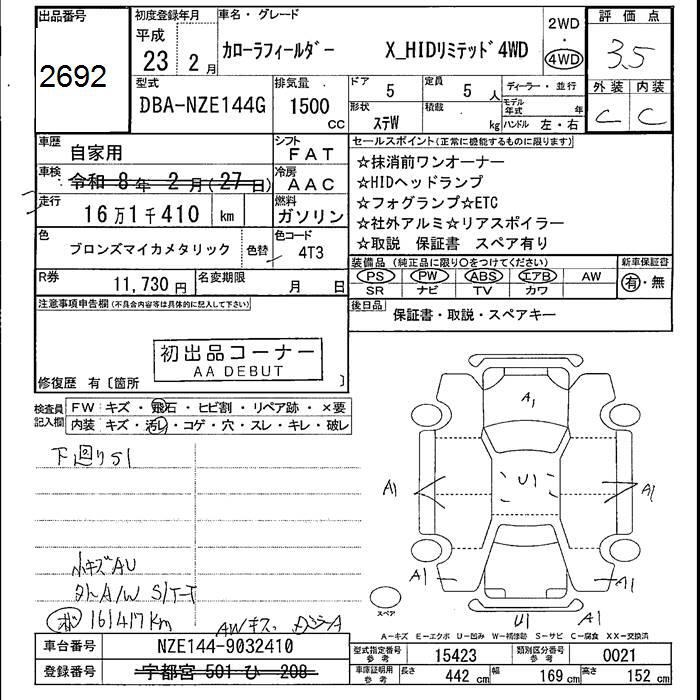 出品番号
2692
初度登録年月
平成
23 2 月
車名・グレード
カローラフィールダー X_HIDリミテッド4WD
2WD
・
4WD
評価点
3.5
外装 内装
C C
型式
DBA-NZE144G
排気量
1500
CC
ドア
5
定員
5 人
形状
ステW
積載
kg
ディーラー・並行
モデル年式 年
ハンドル 左・右
車歴
自家用
シフト
FAT
車検
令和 8 年 2 月(27日)
冷房
AAC
走行
16万1千410 km
燃料
ガソリン
色
ブロンズマイカメタリック
色替
色コード
4T3
R券
11,730 円
名変期限
月 日
セールスポイント(正常に機能するものに限ります)
☆抹消前ワンオーナー
☆HIDヘッドランプ
☆フォグランプ☆ETC
☆社外アルミ☆リアスポイラー
☆取説 保証書 スペア有り
装備品(純正品に限り○をつけてください)
PS PW ABS エアB AW
SR ナビ TV カワ
新車保証書
有・無
後日品
保証書・取説・スペアキー
注意事項申告欄(不具合内容等は具体的に記入して下さい)
初出品コーナー
AA DEBUT
修復歴 有〔箇所 〕
検査員記入欄
FW キズ・飛石・ヒビ割・リペア跡・×要
内装 キズ・汚レ・コゲ・穴・スレ・キレ・破レ
下廻りS1
小キズAU
タトA/W S/T-T
161417Km
AWキズ、
A1
A1
U1
A1
A1
A1
U1
A1
スペア
A-キズ E-エクボ U-凹み W-補修跡 S-サビ C-腐食 XX-交換済
車台番号
NZE144-9032410
登録番号
宇都宮 501 ひ 208
型式指定番号
参考
15423
類別区分番号
参考
0021
車庫証明用
参考
長さ 442 cm 幅 169 cm 高さ 152 cm